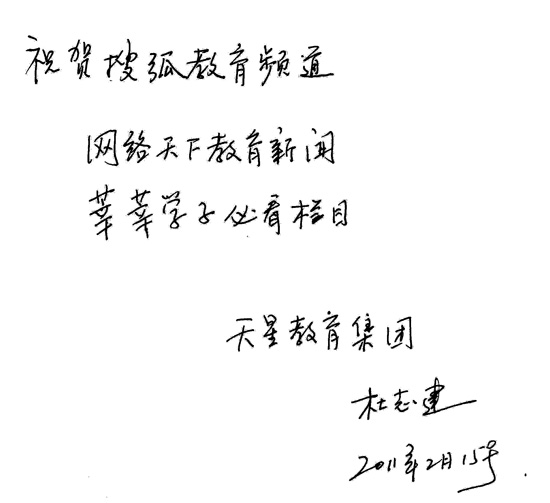 祝贺搜狐教育频道
网络天下教育新闻
莘莘学子必看栏目
天星教育集团
杜志建
2011年2月15号.